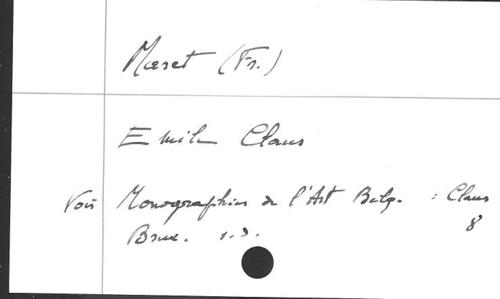 Maret (Fr.)
Emile Claus
Voir Monographies de l'Art Belg. : Claus
8
Brux. s.d.